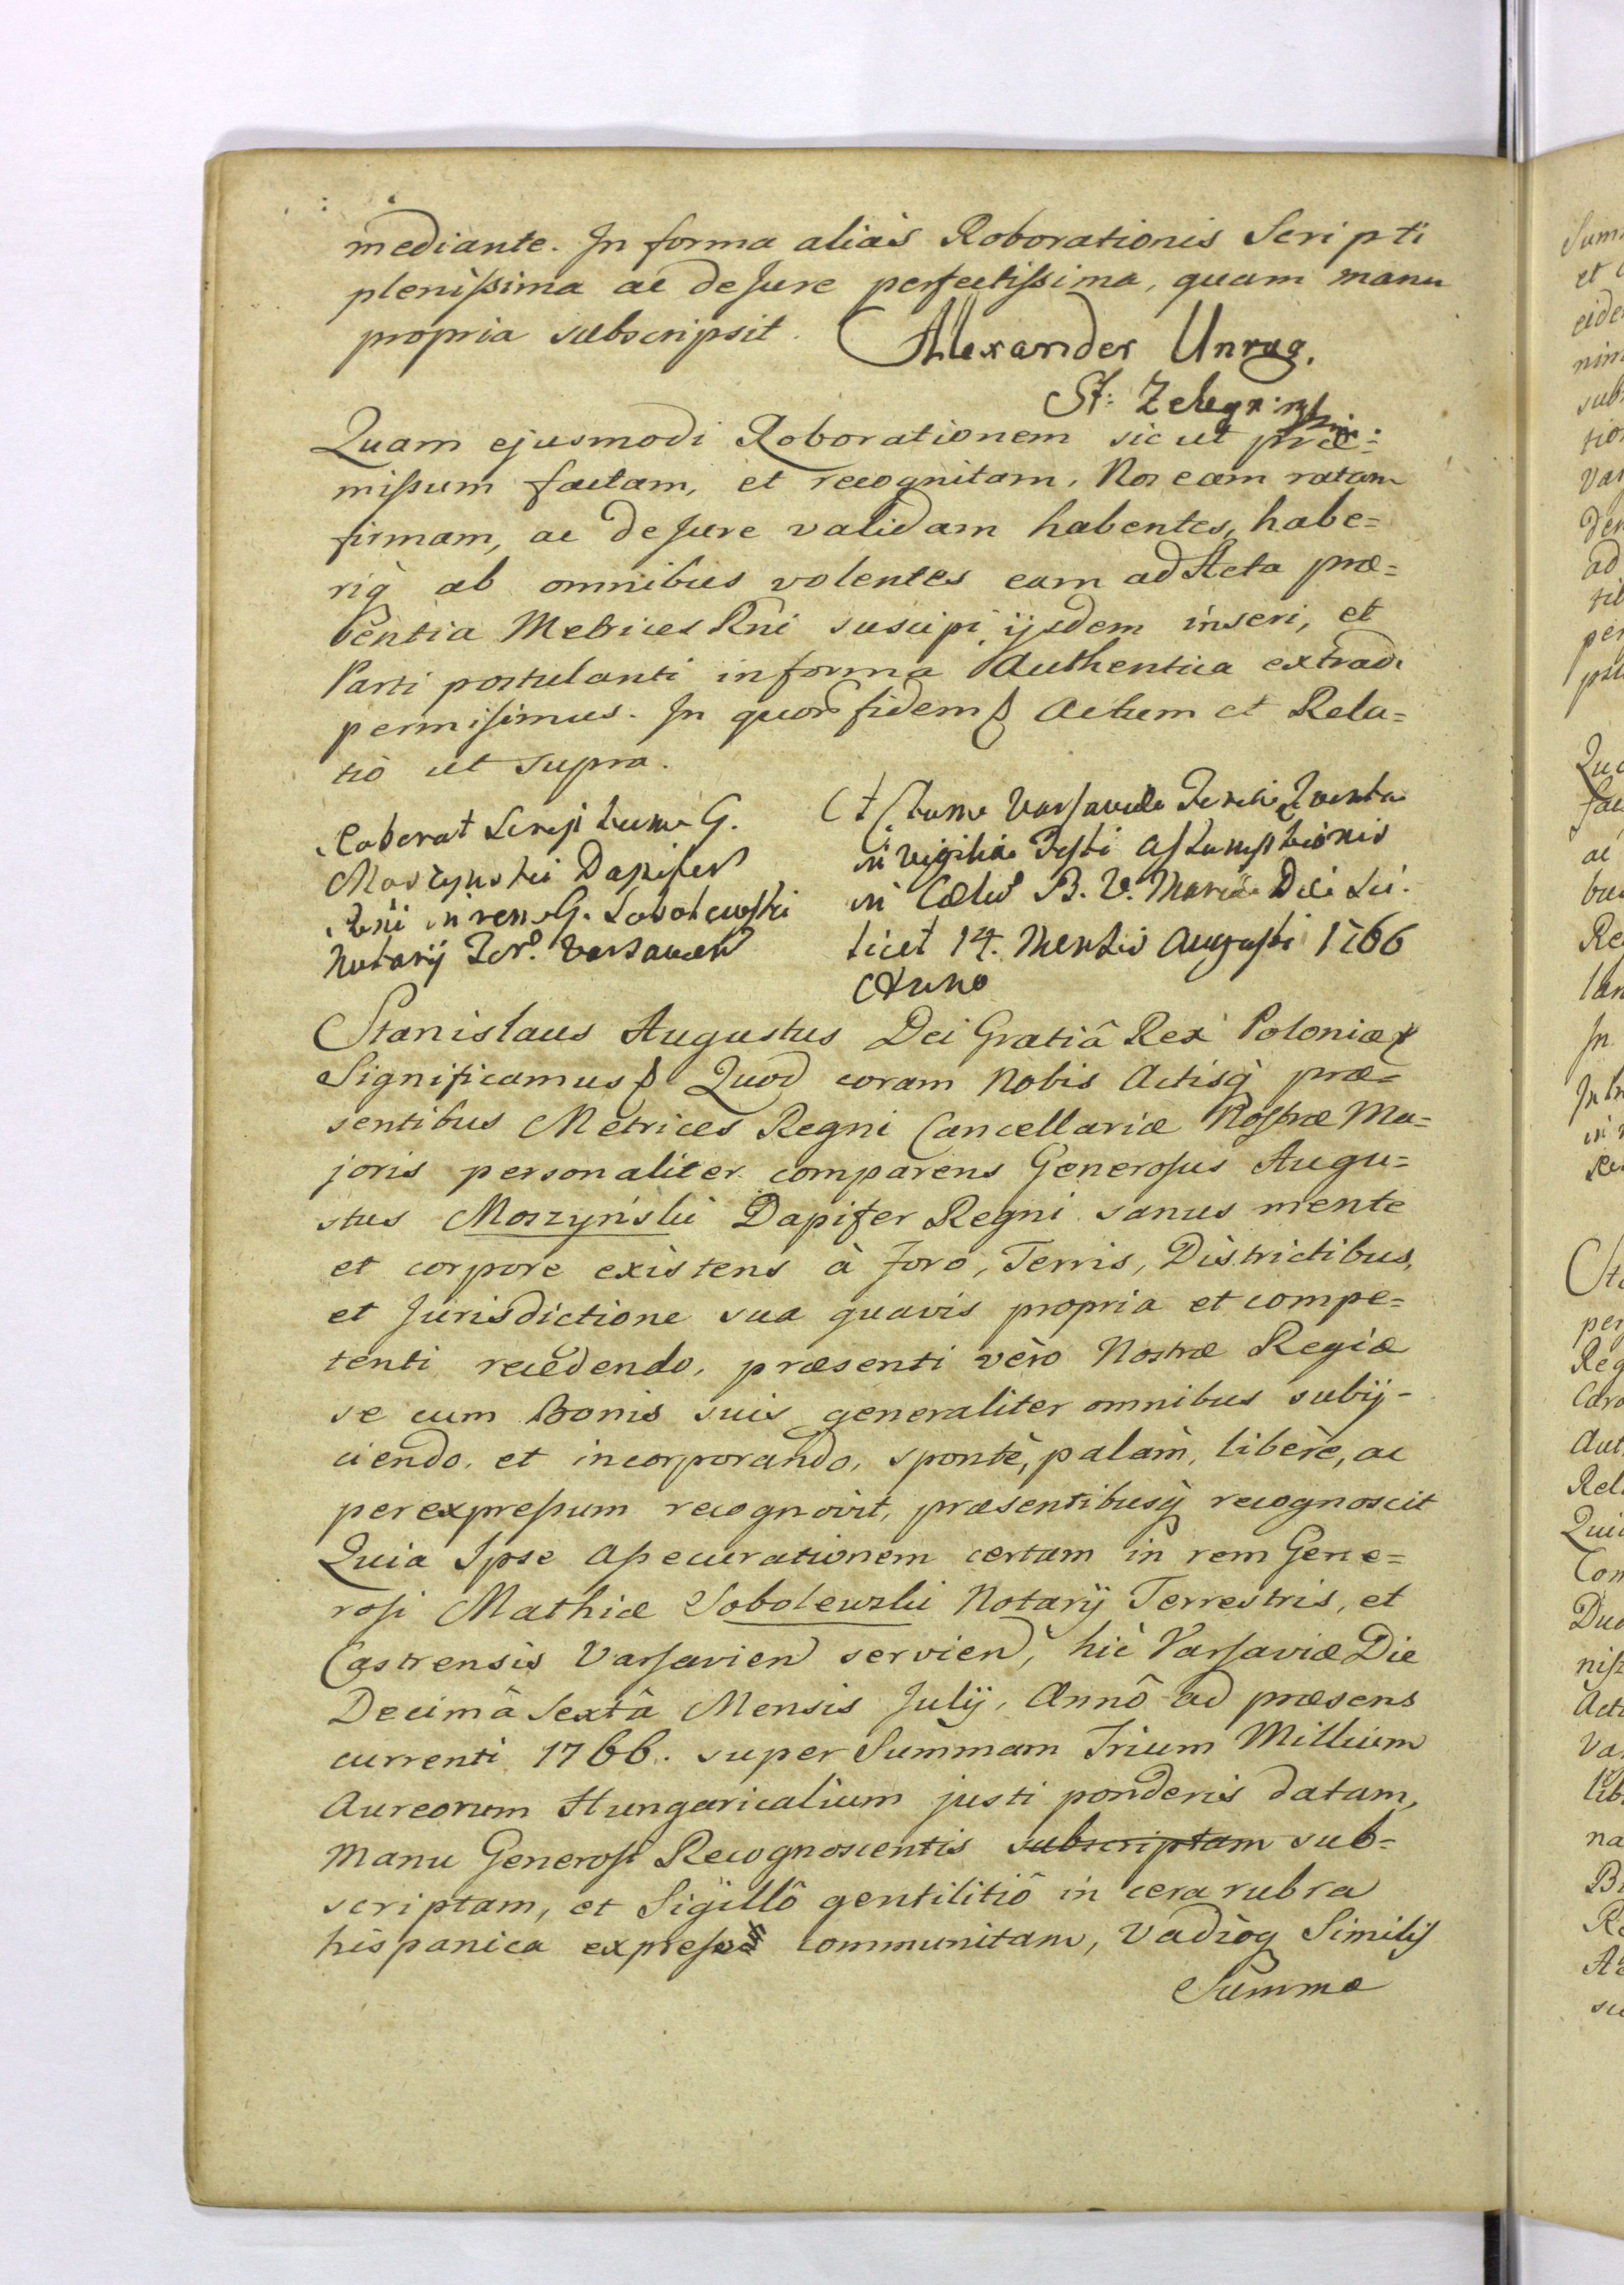 mediante. In forma aliàs Roborationis Scripti
plenißima ac de Jure perfectißima, quam manu
propria subscripsit. Alexander Unrug.
St:
Quam ejusmodi Roborationem sicut præ=
mißum factam, et recognitam, Nos eam ratam
firmam, ac de Jure validam habentes, habe=
riq̀ ab omnibus volentes eam ad Acta præ=
sentia Metrices Rni suscipi ijsdem inseri, et
Parti postulanti in forma Authentica extradi
permisimus. In quor fidem Actum et Rela=
tio ut supra.
Roborat Scriptum G.
Moszynski Dapiferi
Rni in rem G. Sobolewski
Notarij Ter. Varsavien
Actum Varsaviæ Feria Quinta
in Vigilia Festi Assumptionis
in Cœlos B. V. Mariæ Die sci=
licet 14. Mensis Augusti 1766
Anno
Stanislaus Augustus Dei Gratiâ Rex Poloniæ
Significamus Quod coram Nobis Actisq̀ præ=
sentibus Metrices Regni Cancellariæ Nostræ Ma=
joris personaliter comparens Generosus Augu=
stus Moszyński Dapifer Regni sanus mente
et corpore existens à Foro, Terris, Districtibus,
et Jurisdictione sua quavis propria et compe=
tenti recedendo, præsenti verò Nostræ Regiæ
se cum Bonis suis generaliter omnibus subij-
ciendo, et incorporando, spontè, palàm, liberè, ac
per expreßum recognovit, præsentibusq̀ recognoscit
Quia Ipse Aßecurationem certam in rem Gene=
rosi Mathiæ Sobolewski Notarij Terrestris, et
Castrensis Varsavien servien, hic Varsaviæ Die
Decimâ Sextâ Mensis Julij, Annô ad præsens
currenti 1766. super Summam Trium Millium
Aureorum Hungaricalium justi ponderis datam,
Manu Generosi Recognoscentis subscriptam sub=
scriptam, et Sigillô gentilitiô in cera rubra
hispanica communitam, Vadioq Similis
Summæ